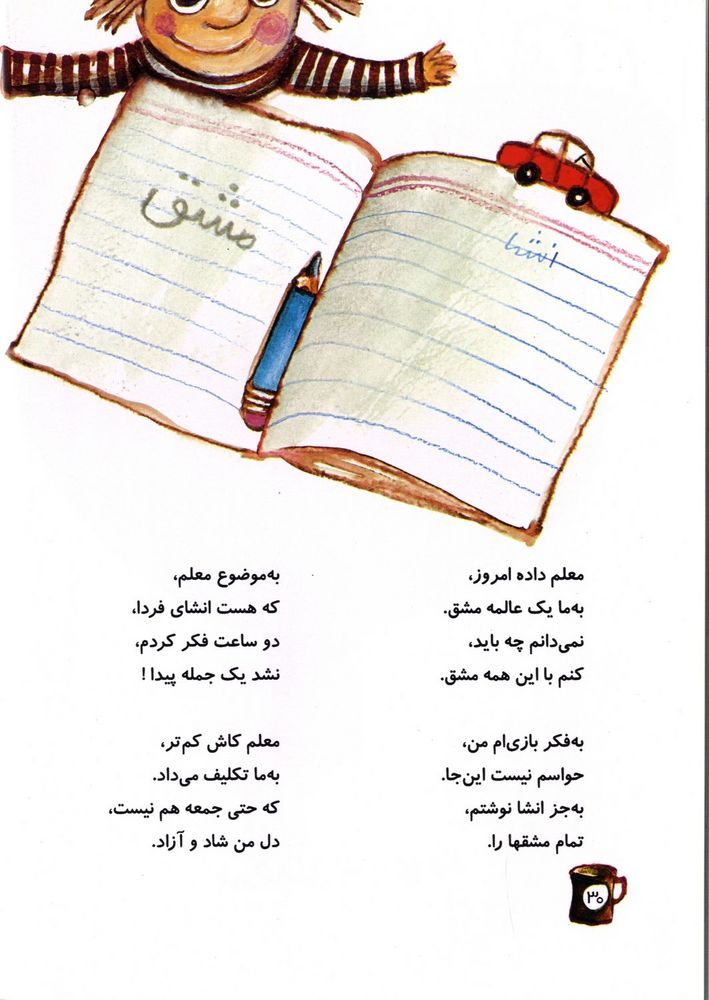 مشق
انشا
معلم داده امروز،
به‌ما یک عالمه مشق.
نمی‌دانم چه باید،
کنم با این همه مشق.
به‌فکر بازی‌ام من،
حواسم نیست این‌جا.
به‌جز انشا نوشتم،
تمام مشقها را.
به‌موضوع معلم،
که هست انشای فردا،
دو ساعت فکر کردم،
نشد یک جمله پیدا!
معلم کاش کم‌تر،
به‌ما تکلیف می‌داد.
که حتی جمعه هم نیست،
دل من شاد و آزاد.
۳۰